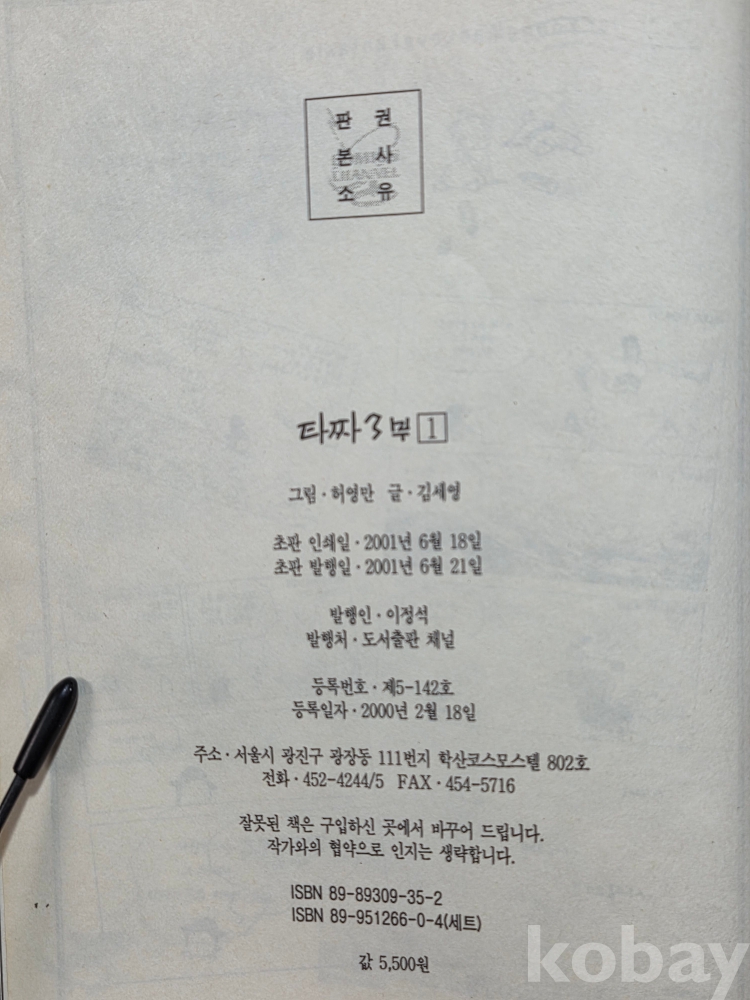 판 권
본 사
소 유
CHANNEL
타짜 3부 1
그림·허영만 글·김세영
초판 인쇄일·2001년 6월 18일
초판 발행일·2001년 6월 21일
발행인·이정석
발행처·도서출판 채널
등록번호·제5-142호
등록일자·2000년 2월 18일
주소·서울시 광진구 광장동 111번지 학산코스모스텔 802호
전화·452-4244/5 FAX·454-5716
잘못된 책은 구입하신 곳에서 바꾸어 드립니다.
작가와의 협약으로 인지는 생략합니다.
ISBN 89-89309-35-2
ISBN 89-951266-0-4(세트)
값 5,500원
kobay